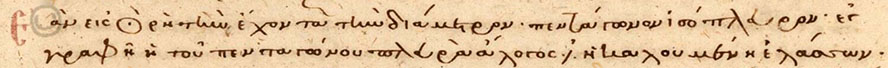 Ἐὰν εἰς ☉ ῥητὴν ἔχοντα τὴν διάμετρον· πεντάγωνον ἰσόπλευρον· ἐγ
γραφῆ ἡ τοῦ πενταγώνου πλευρὰ ἄλογός ἐστιν ἡ καλουμένη ἐλάσσων·